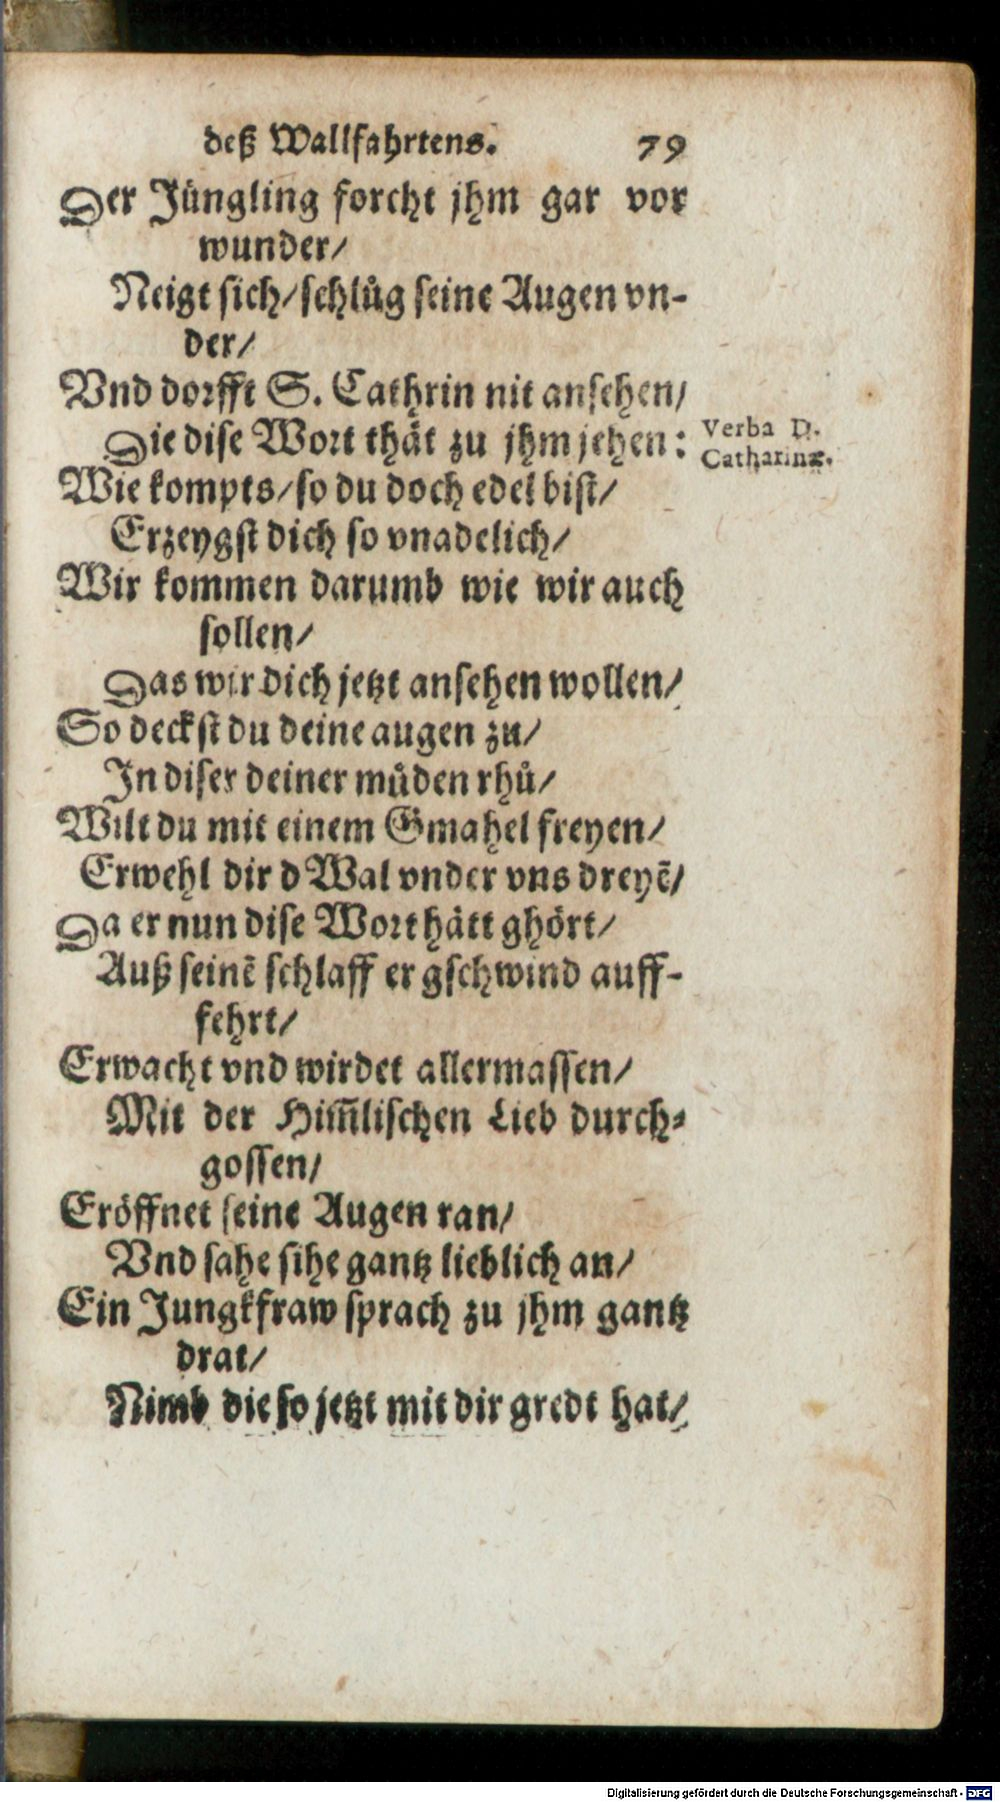 deß Wallfahrtens. 79
Der Jüngling forcht jhm gar vor
wunder/
Neigt sich/ schlůg seine Augen vn-
der/
Vnd dorfft S. Cathrin nit ansehen/
Die dise Wort thät zu jhm jehen:
Verba D.
Catharinæ.
Wie kompts/ so du doch edel bist/
Erzeygst dich so vnadelich/
Wir kommen darumb wie wir auch
sollen/
Das wir dich jetzt ansehen wollen/
So deckst du deine augen zu/
In diser deiner můden rhů/
Wilt du mit einem Gmahel freyen/
Erwehl dir d Wal vnder vns dreyẽ/
Da er nun dise Wort hätt ghört/
Auß seinẽ schlaff er gschwind auff-
fehrt/
Erwacht vnd wirdet allermassen/
Mit der Him̃lischen Lieb durch-
gossen/
Eröffnet seine Augen ran/
Vnd sahe sihe gantz lieblich an/
Ein Jungkfraw sprach zu jhm gantz
drat/
Nimb die so jetzt mit dir gredt hat/
Digitalisierung gefördert durch die Deutsche Forschungsgemeinschaft - DFG